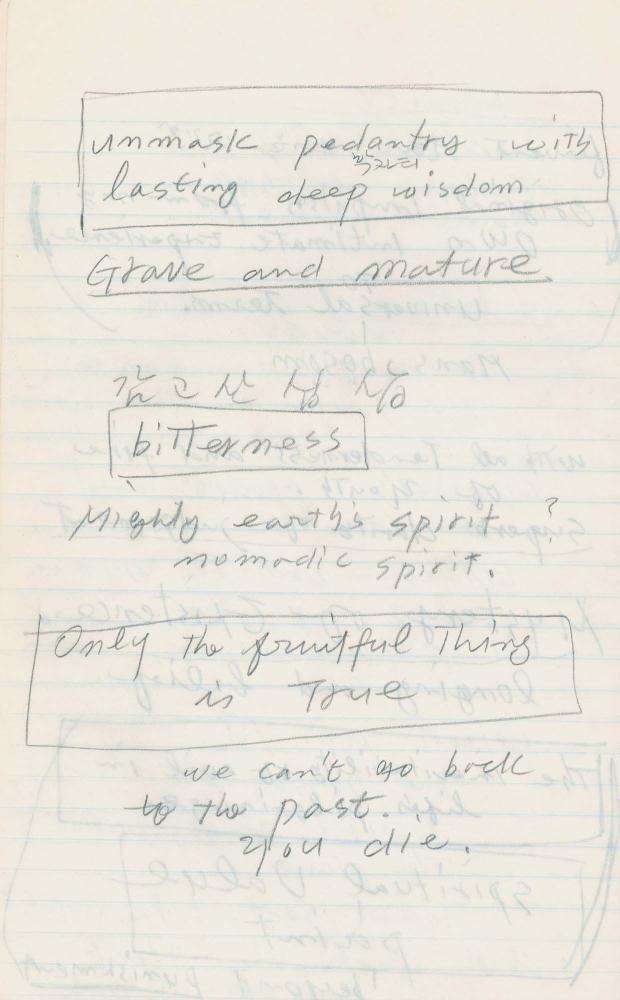 unmask pedantry with
lasting deep wisdom
Grave and mature
깊고 산 삶
bitterness
Mighly earth's spirit?
nomadic spirit.
Only the fruitful Thing
is True
we can't go back
to the past.
you die.